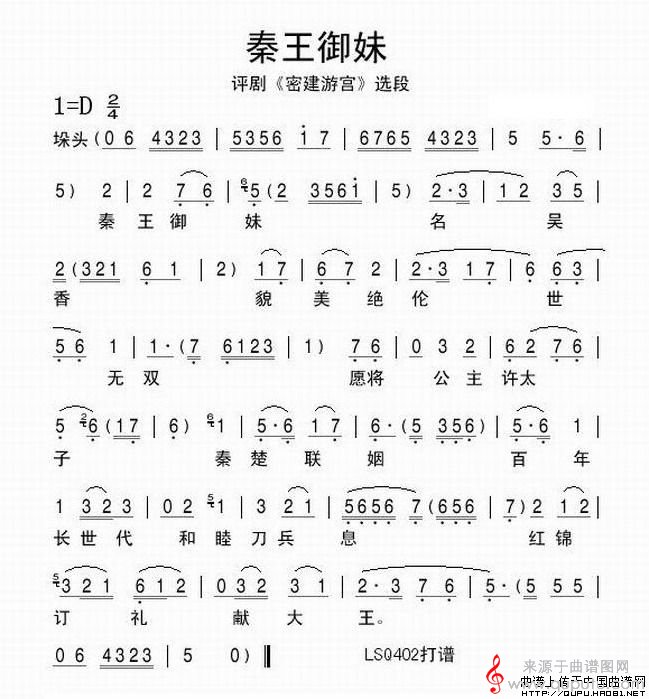 秦王御妹
评剧《密建游宫》选段
1=D 2/4
垛头 (0 6 4323 | 5356 1 7 | 6765 4323 | 5 5· 6 |
5) 2 | 2 7 6 | 6 5 (2 3561 | 5) 2·3 | 1 2 3 5 |
秦 王 御 妹 名 吴
2 (321 6 1 | 2) 1 7 | 6 7 2 | 2·3 1 7 | 6 6 3 |
香 貌 美 绝 伦 世
5 6 1 | 1·(7 6123 | 1) 7 6 | 0 3 2 | 6 2 7 6 |
无 双 愿将 公 主 许太
5 2 6 (17 | 6) 6 1 | 5·6 1 7 | 6·(5 356) | 5·6 1 |
子 秦 楚 联 姻 百 年
1 323 | 0 2 5 1 | 3 2 1 | 5656 7 (656 | 7) 2 1 2 |
长 世 代 和 睦 刀 兵 息 红 锦
5 3 2 1 6 1 2 | 0 3 2 3 1 | 2·3 7 6 | 5·(5 5 5 |
订 礼 献 大 王。
0 6 4323 | 5 0) ‖ LSQ402打谱
来源于曲谱图网
曲谱上传于中国曲谱网
HTTP://QUPU.HAO81.NET